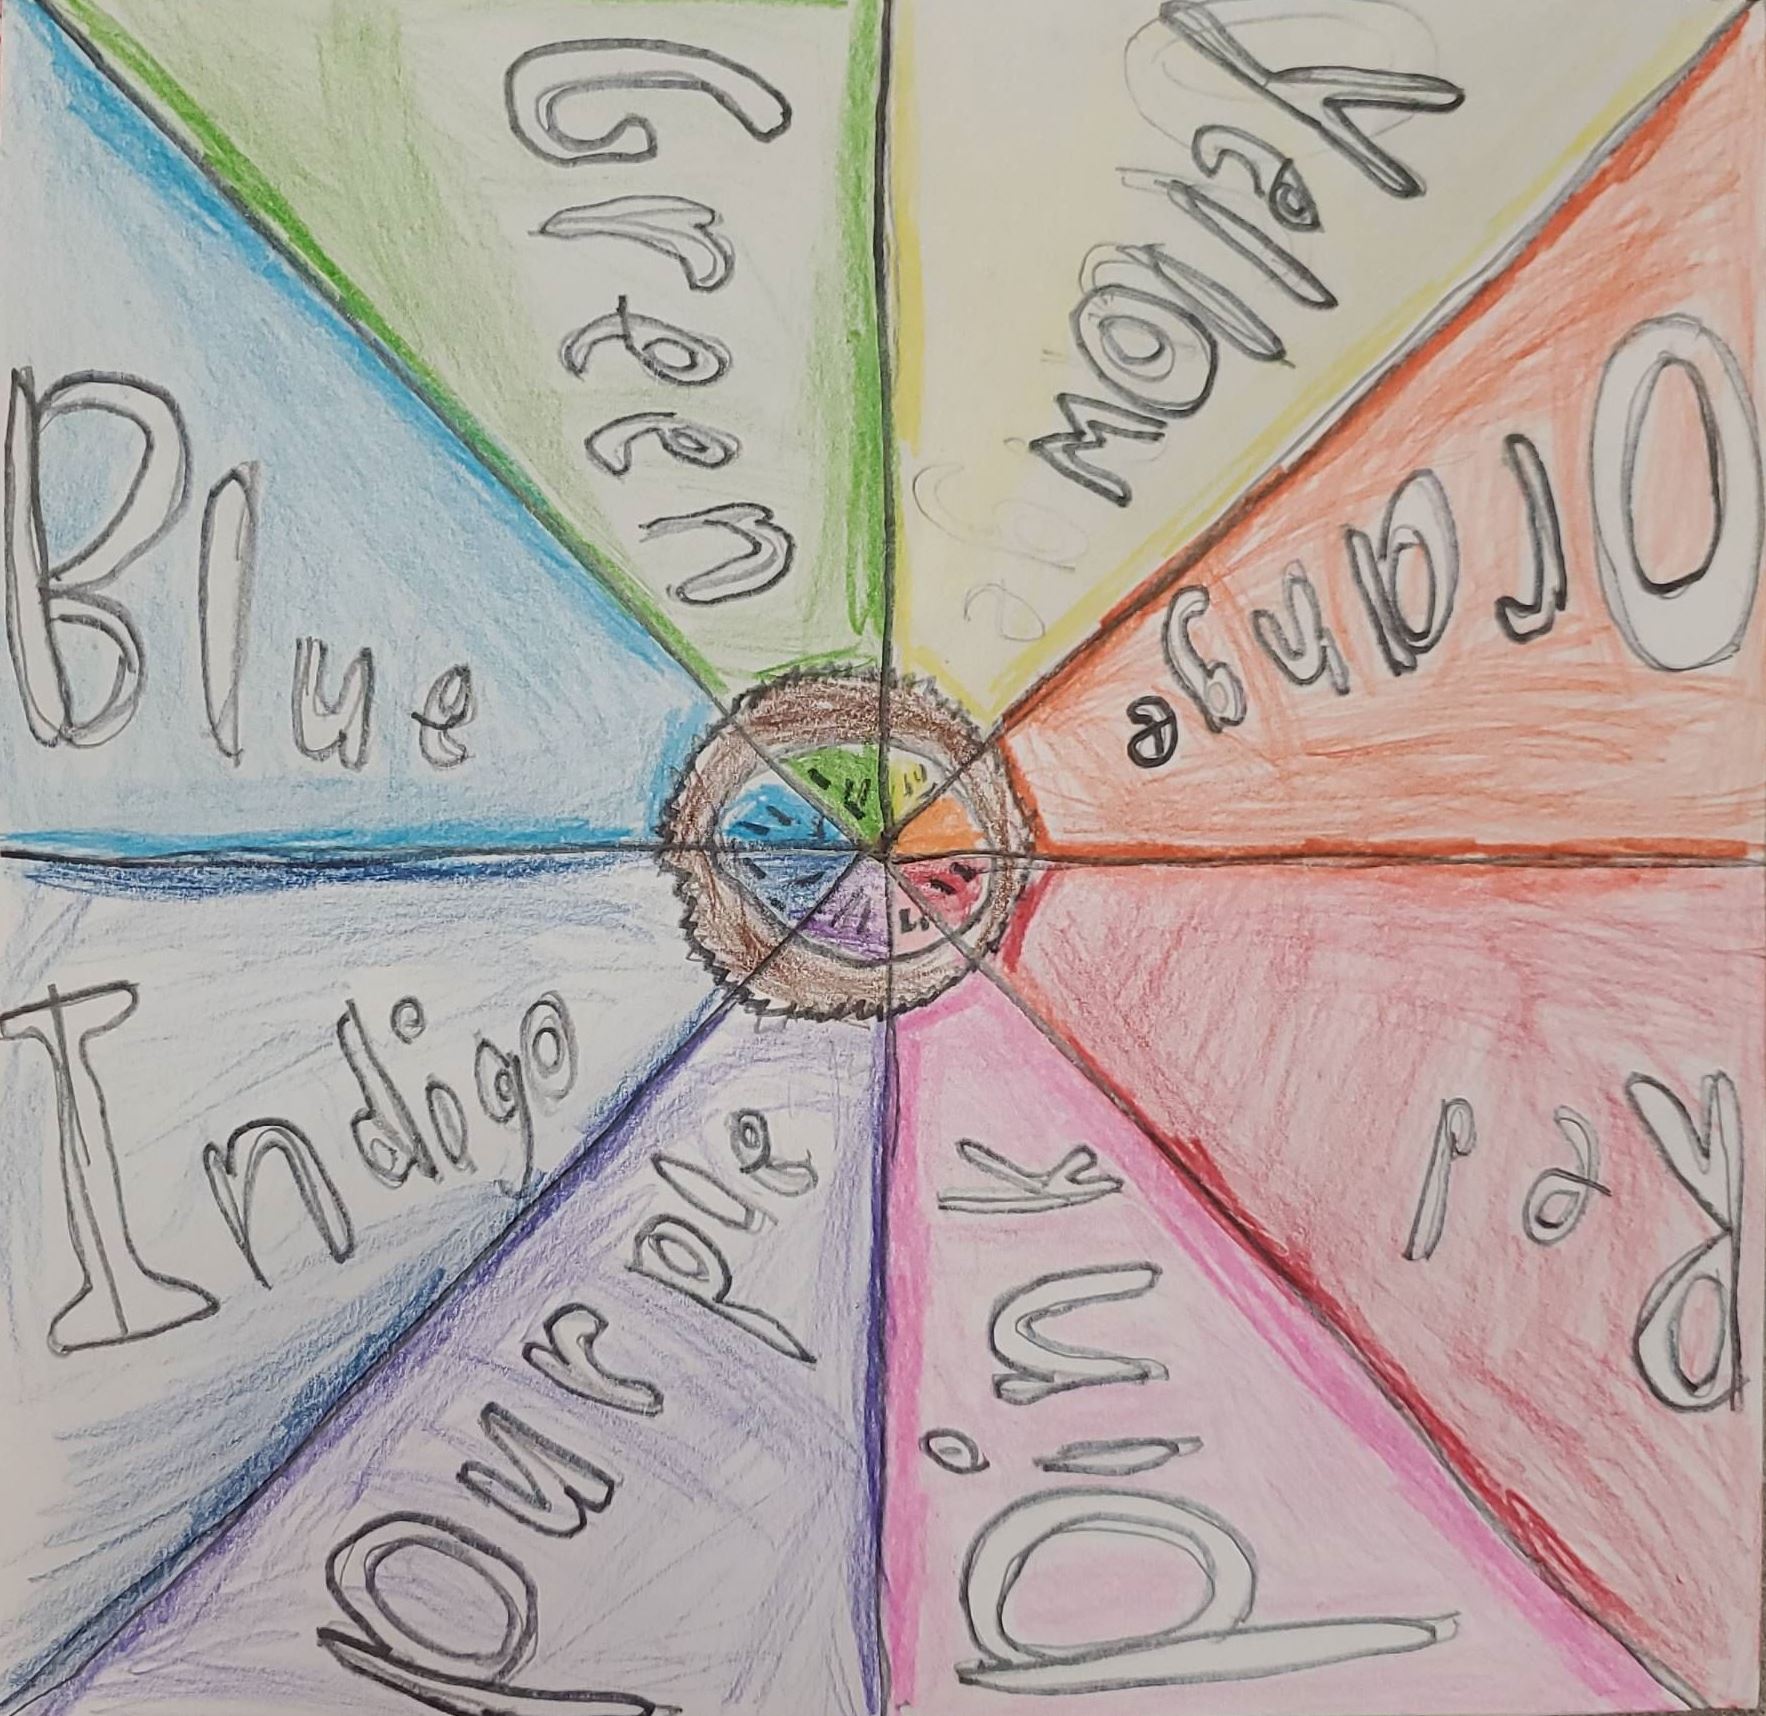 Green
Yellow
Orange
Red
Pink
Purple
Indigo
Blue